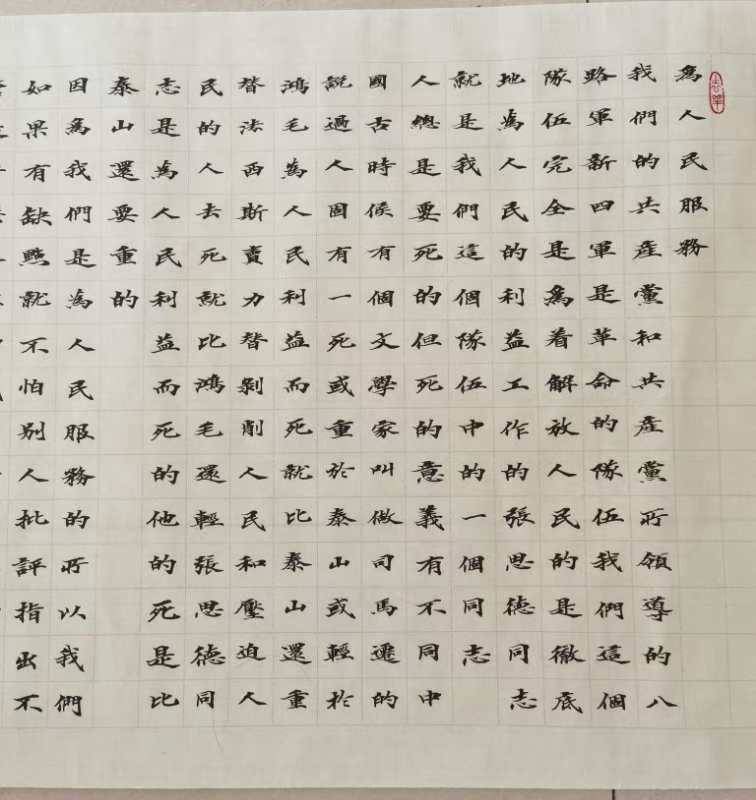 為人民服務
我們的共產黨和共產黨所領導的八
路軍新四軍是革命的隊伍我們這個
隊伍完全是為着解放人民的是徹底
地為人民的利益工作的張思德同志
就是我們這個隊伍中的一個同志
人總是要死的但死的意義有不同中
國古時候有個文學家叫做司馬遷的
說過人固有一死或重於泰山或輕於
鴻毛為人民利益而死就比泰山還重
替法西斯賣力替剝削人民和壓迫人
民的人去死就比鴻毛還輕張思德同
志是為人民利益而死的他的死是比
泰山還要重的
因為我們是為人民服務的所以我們
如果有缺點就不怕別人批評指出不